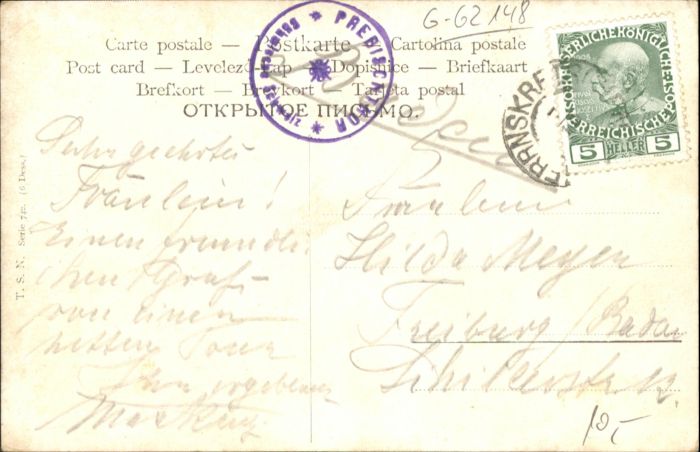 G-62148
Carte postale — Postkarte — Cartolina postale
Post card — Levelező-Lap — Dopisnice — Briefkaart
Brefkort — Brevkort — Tarjeta postal
ОТКРЫТОЕ ПИСЬМО.
PREBISCHTHOR
Böhmische Schweiz
HERRNSKRE
KAISERLICHE KÖNIGLICHE
ÖSTERREICHISCHE POST
5 HELLER 5
T. S. N. Serie 742. (6 Dess.)
Sehr geehrtes
Fräulein!
Einen freundli-
chen Gruß
von einer
netten Tour
Ihr ergebener
Fräulein
Hilda Meyer
Freiburg / Baden
10,-